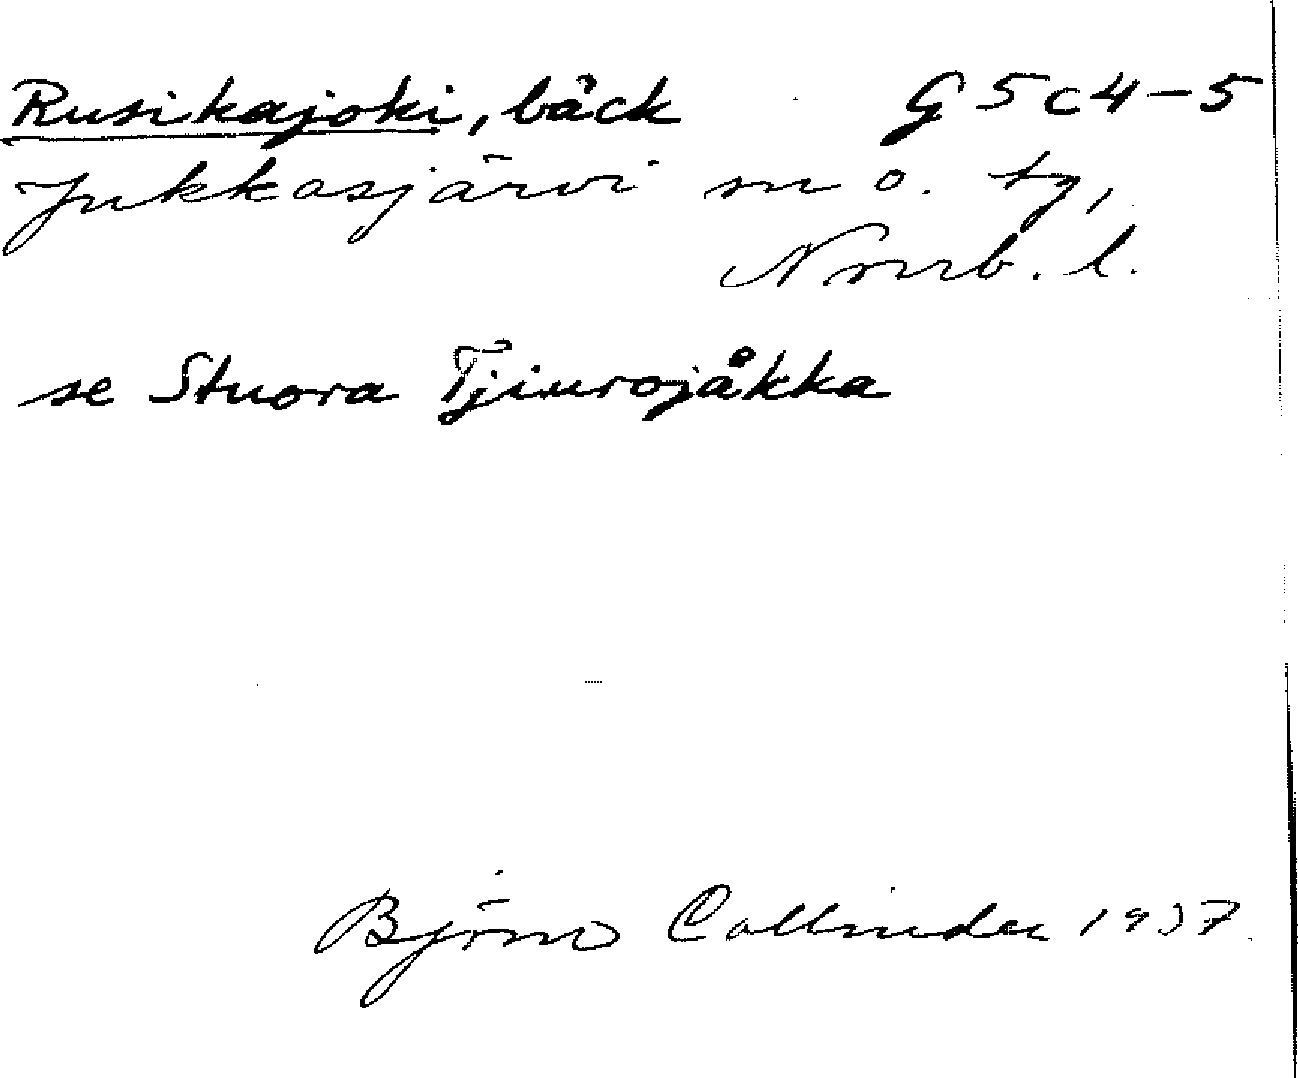 Rusikajoki, bäck G 5 c 4-5
Jukkasjärvi sn o. tg,
Norrb. l.
se Stuora Tjiurojåkka
Björn Collinder 1937